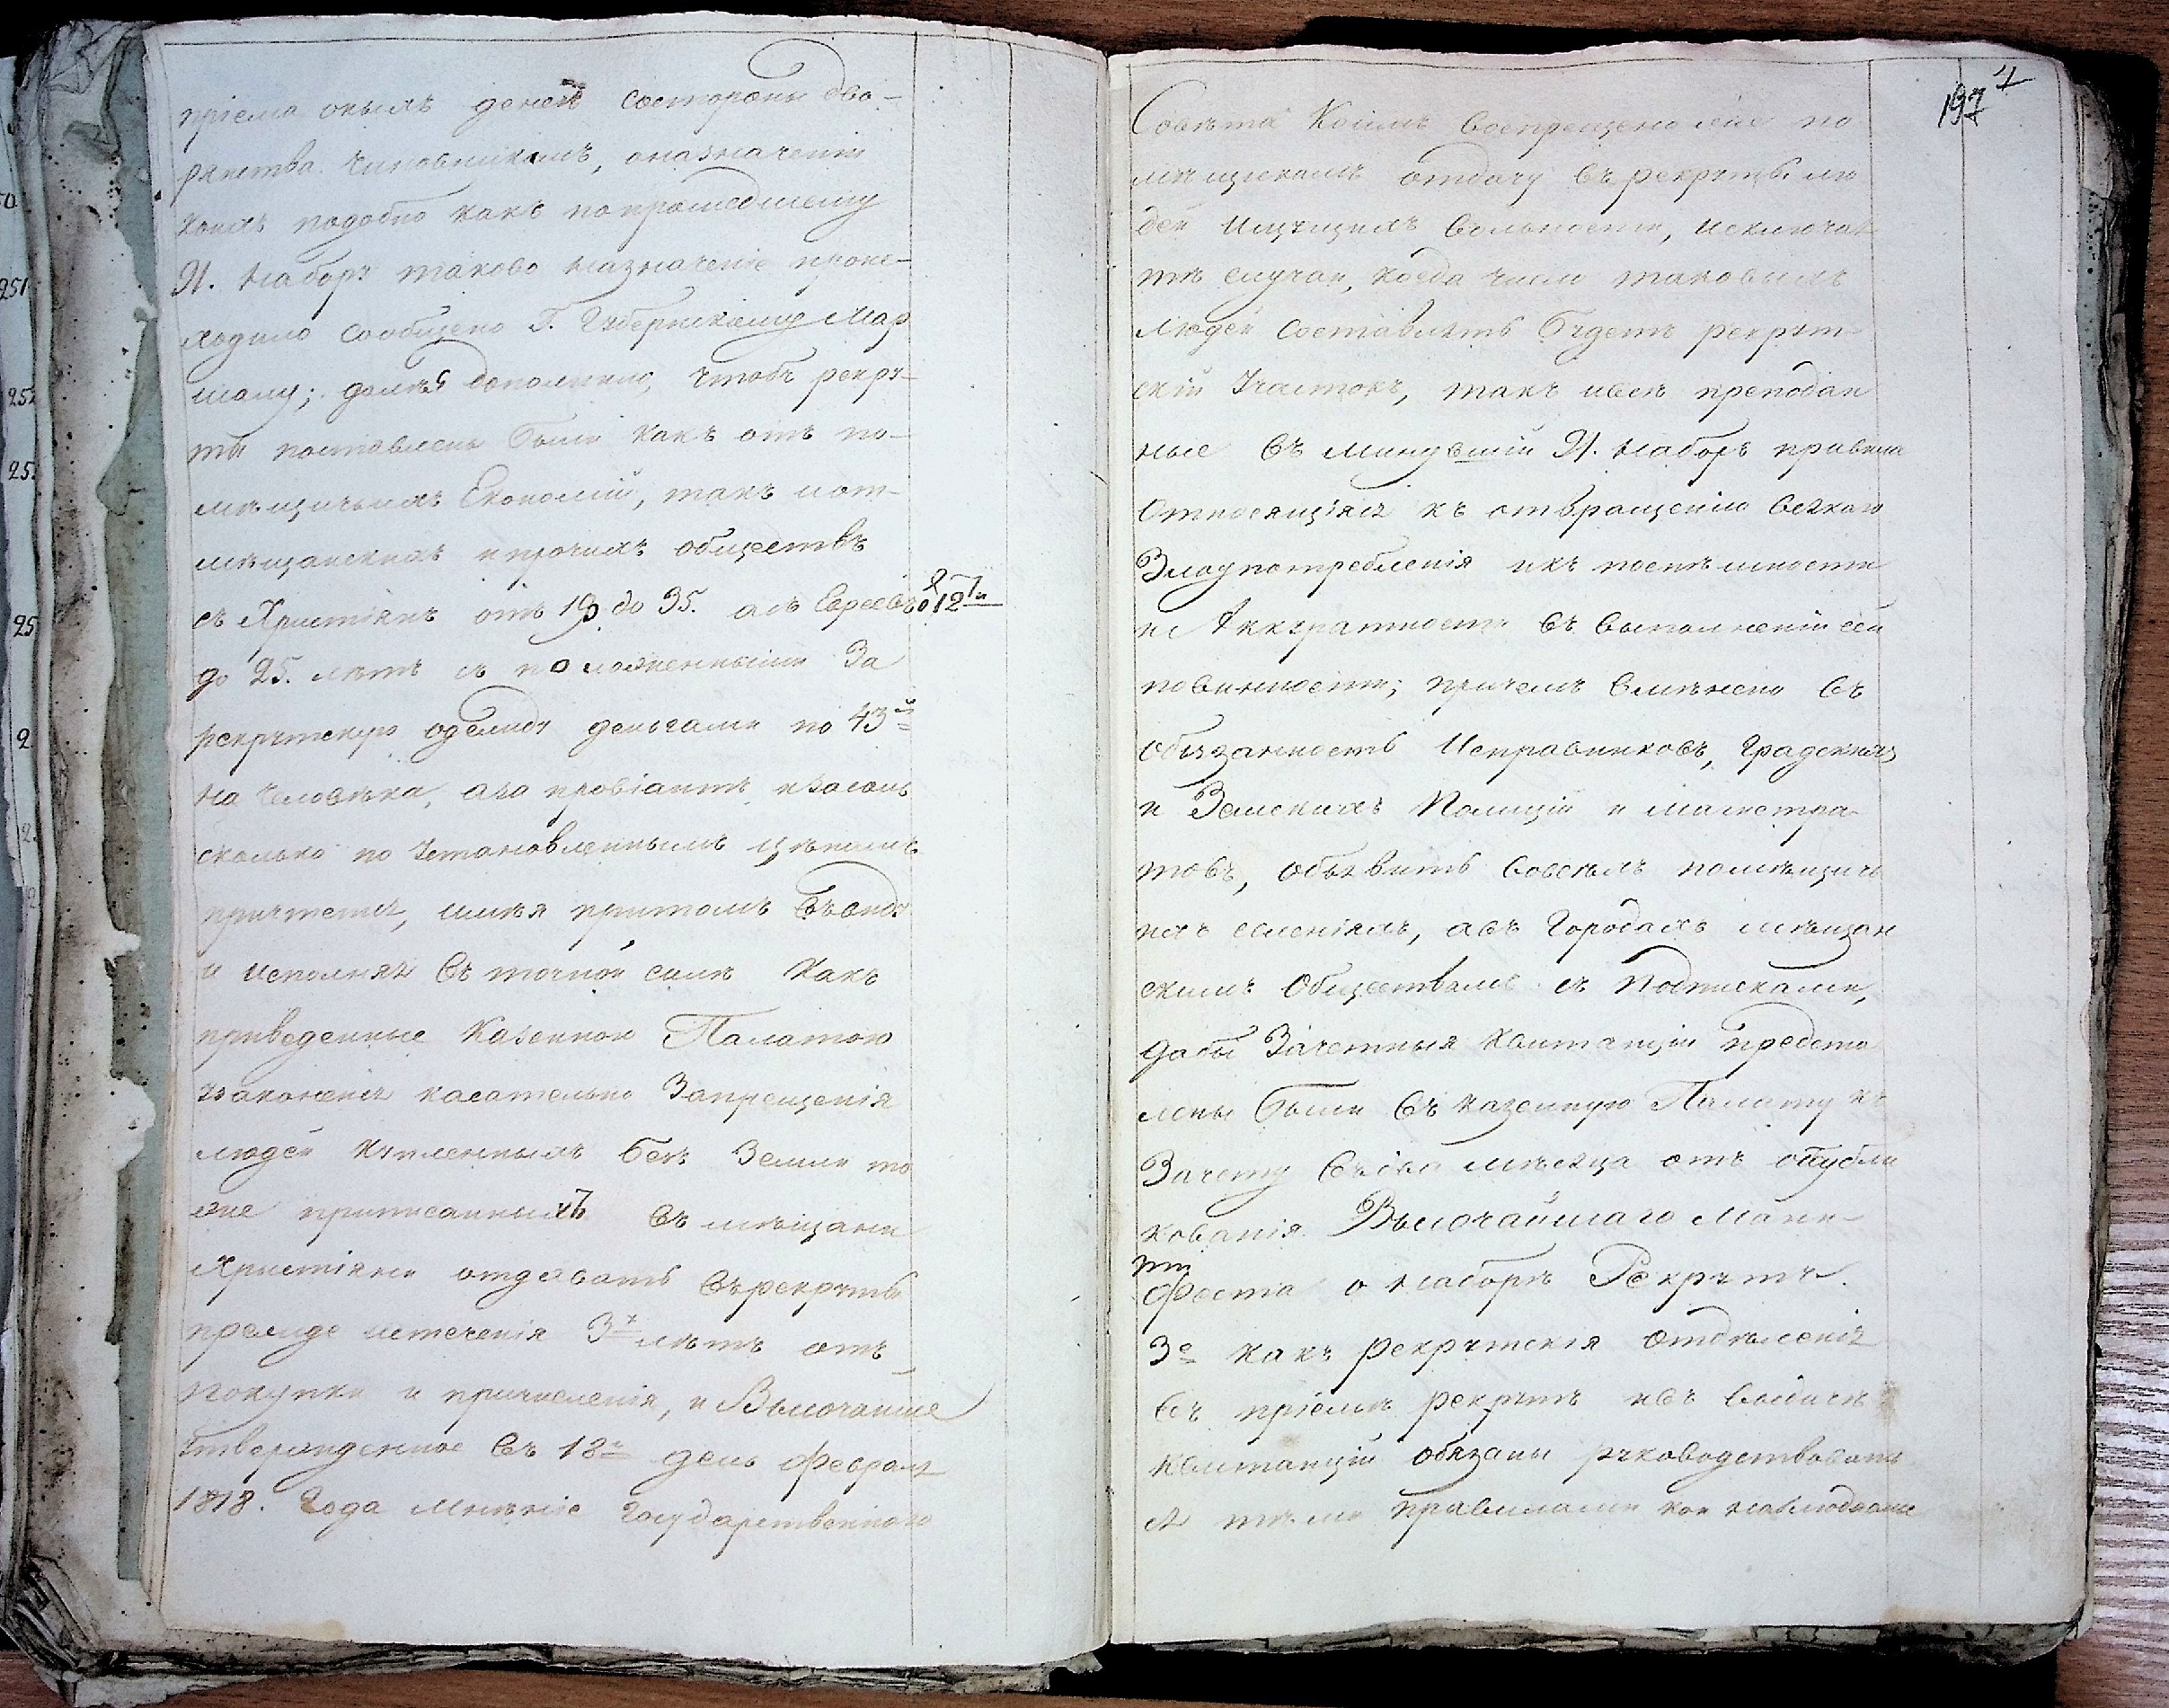 пріема оныхъ денегъ состороны дво-
рянства чиновникамъ, оназначеніи
коихъ подобно какъ попрошедшему
И. наборѣ таково назначеніе проис-
ходило сообщено Г. Губернскому Мар
шалу; дополнено, чтобъ рекру-
ты поставлены были какъ отъ по-
мѣщичьихъ Економій, такъ иот-
мѣщанскихъ ипрочихъ обществъ
съ Христіянъ отъ 19 до 35. асъ Евреевъ о 12ти
до 25. лѣтъ съ положенными за
рекрутскую одежду деньгами по 43
на человѣка, аза провіантъ изасоль
сколько по установленнымъ цѣнамъ
причтется, имѣя притомъ Ввиду
и исполняя въ точной силѣ какъ
приведенные Казенною Палатою
узаконенія касательно Запрещенія
людей купленныхъ безъ Земли то
же приписанныхъ въ мѣщани
Христіяне отдавать върекруты
прежде истеченія 3х лѣтъ отъ
покупки и причисленія, и Высочайше
Утвержденное въ 18й день февраля
1818. Года мнѣніе Государственнаго
197
4
Совѣта Коимъ воспрещено по
мѣщикамъ отдачу върекруты лю
дей Ищущихъ вольности, исключая
тѣ случаи, когда число таковыхъ
людей составлять будетъ рекрут-
скій Участокъ, такъ ивсѣ преподан
ные въ минувшій И. наборъ правила
Относящіяся къ отвращенію всякаго
Злоупотребленія икъ поспѣшности
и Аккуратности въ выполненіи сей
повинности; причемъ вмѣнено въ
обязанность Исправниковъ, градскихъ
и Земскихъ Полицій и магистра-
товъ, объявить вовсѣхъ помѣщичь
ихъ селеніяхъ, авъ Городахъ мѣщан
скимъ Обществамъ съ подписками,
дабы Зачетныя квитанціи предста
лены были въ казенную Палату къ
Зачету мѣсяца отъ опубли
кованія Высочайшаго Мани-
феста о наборѣ Рекрутъ.
3е Какъ рекрутскія отдѣленія
въ пріемѣ рекрутъ ивъ выдачѣ
квитанцій обязаны руководствовать
ся тѣми правилами кои наблюдаемы